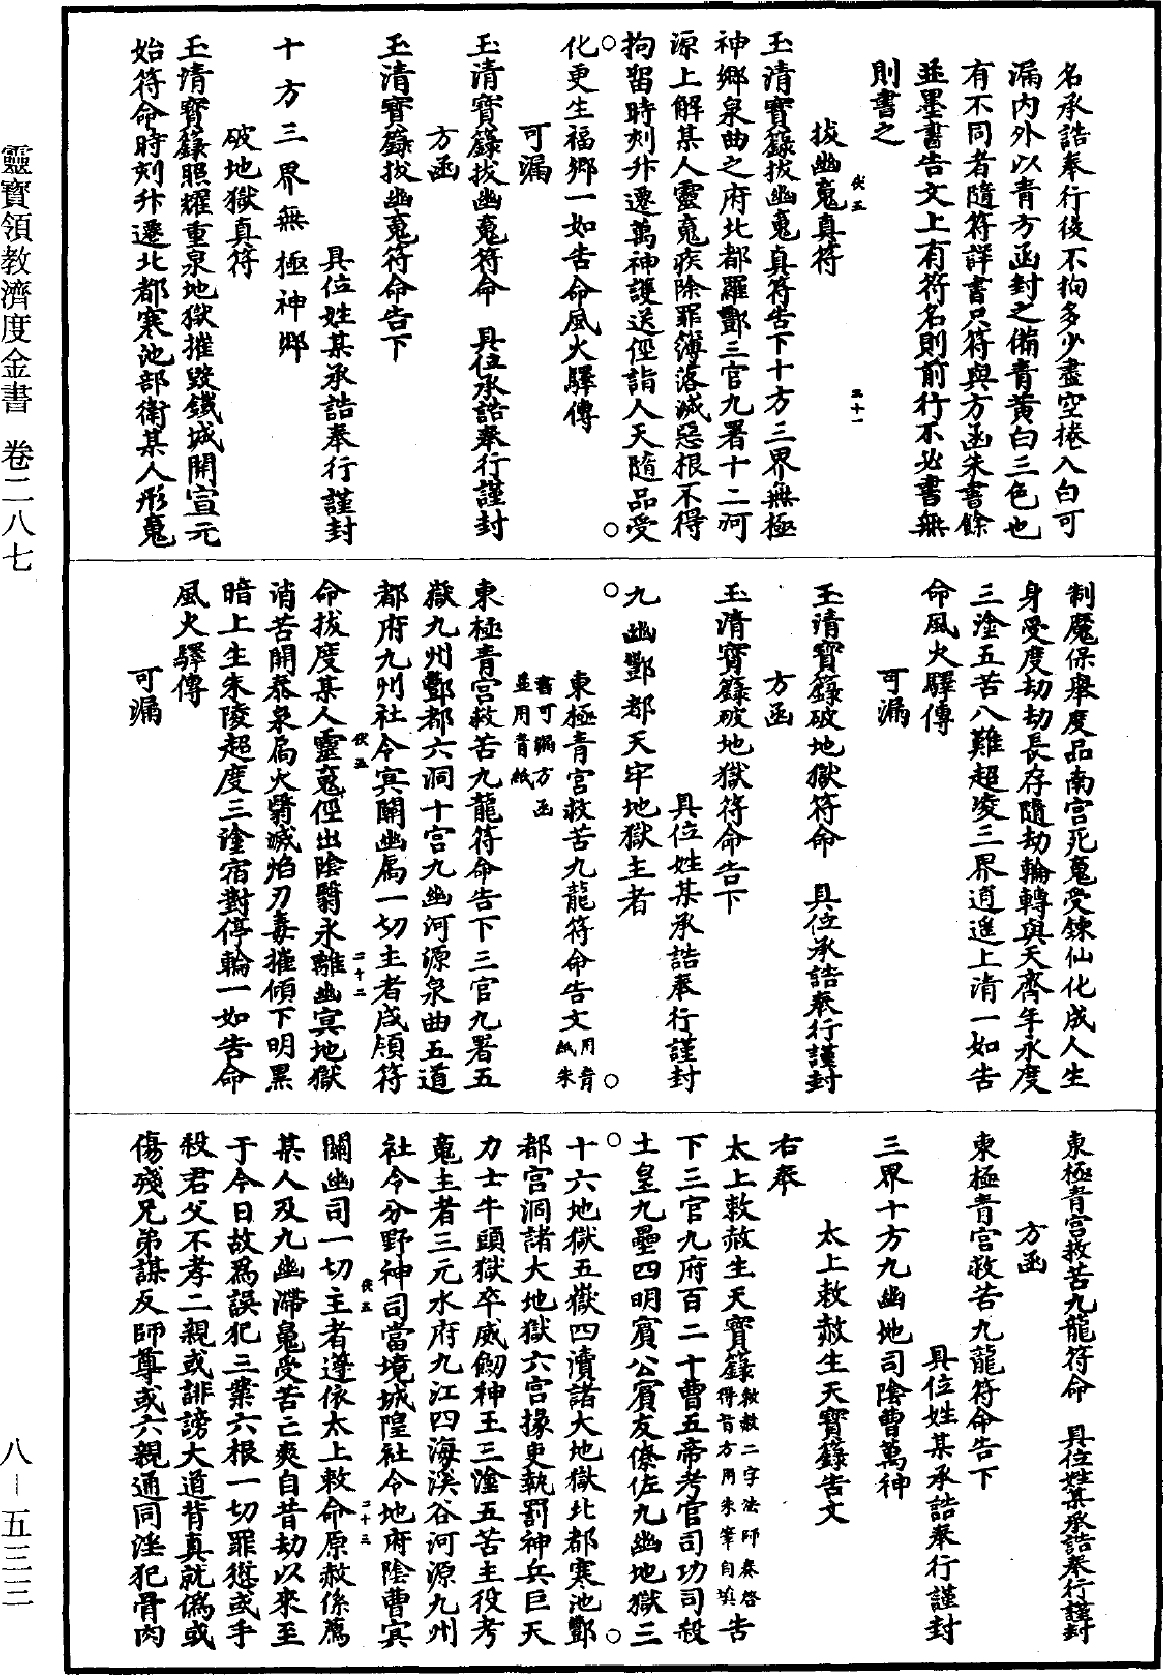 名承誥奉行後不拘多少盡空捲入白可
漏内外以青方函封之備青黄白三色也
有不同者隨符詳書只符與方函朱書餘
並墨書告文上有符名則前行不必書無
則書之
拔幽䰟真符
伏五
三十一
玉清寳籙拔幽䰟真符告下十方三界無極
神鄉泉曲之府北都羅酆三官九署十二河
源上解某人靈䰟疾除罪簿落滅惡根不得
拘留時刻升遷萬神護送徑詣人天隨品受
化更生福鄉一如告命風火驛傳
可漏
玉清寳籙拔幽䰟符命 具位承誥奉行謹封
方函
玉清寳籙拔幽䰟符命告下
具位姓某承誥奉行謹封
十方三界無極神鄉
破地獄真符
玉清寳籙照耀重泉地獄摧毀鐵城開宣元
始符命時刻升遷北都寒池部衛某人形䰟
制魔保舉度品南宫死䰟受鍊仙化成人生
身受度劫劫長存隨劫輪轉與天齊年永度
三塗五苦八難超凌三界逍遥上清一如告
命風火驛傳
可漏
玉清寳籙破地獄符命 具位承誥奉行謹封
方函
玉清寳籙破地獄符命告下
具位姓某承誥奉行謹封
九幽酆都天牢地獄主者
東極青宫救苦九龍符命告文用青紙朱
書可漏方函
並用青紙
東極青宫救苦九龍符命告下三官九署五
嶽九州酆都六洞十宫九幽河源泉曲五道
都府九州社令㝠關幽局一切主者咸順符
伏五
二十二
命拔度某人靈䰟徑出陰翳永離幽㝠地獄
消苦開泰泉扃火翳滅焰刀毒摧傾下明黑
暗上生朱陵超度三塗宿對停輪一如告命
風火驛傳
可漏
東極青宫救苦九龍符命 具位姓某承誥奉行謹封
方函
東極青宫救苦九龍符命告下
具位姓某承誥奉行謹封
三界十方九幽地司陰曹萬神
太上敕赦生天寳籙告文
右奉
太上敕赦生天寳籙敕赦二字法師奏啓得旨方用朱筆自填告
下三官九府百二十曹五帝考官司功司殺
土皇九壘四明賓公賓友僚佐九幽地獄三
十六地獄五嶽四瀆諸大地獄北都寒池酆
都宫洞諸大地獄六宫掾吏執罰神兵巨天
力士牛頭獄卒威劒神王三塗五苦主役考
䰟主者三元水府九江四海溪谷河源九州
社令分野神司當境城隍社令地府陰曹㝠
伏五
二十三
關幽司一切主者遵依太上敕命原赦係薦
某人及九幽滯䰟受苦亡爽自昔劫以來至
于今日故爲誤犯三業六根一切罪愆或手
殺君父不孝二親或誹謗大道背真就僞或
傷殘兄弟謀反師尊或六親通同淫犯骨肉
靈寳領教濟度金書 卷二八七
八—五三三